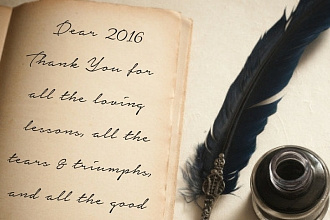 Dear 2016
Thank You for
all the loving
lessons, all the
tears & triumphs,
and all the good